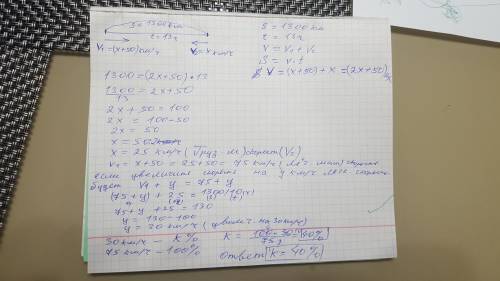 S = 1300 km
t = 13ч
V₁ = (x+50) км/ч
V₂ = x км/ч
S = 1300 km
t = 13ч
V = V₁ + V₂
S = V · t
V = (x+50) + x = (2x+50)
1300 = (2x+50) · 13
1300/13 = 2x+50
2x + 50 = 100
2x = 100-50
2x = 50
x = 50:2
x = 25 км/ч (груз м) скорост (V₂)
V₁ = x+50 = 25+50 = 75 км/ч
если увеличит скорость на y км/ч легк.
будет V₁ + y = 75+y
(75+y) + 25 = 1300/10
75+y+25 = 130
y = 130-100
y = 30 км/ч (увелич. на 30 км/ч)
30 км/ч - K%
75 км/ч - 100%
K = 100·30/75 = 40%
ответ K = 40%